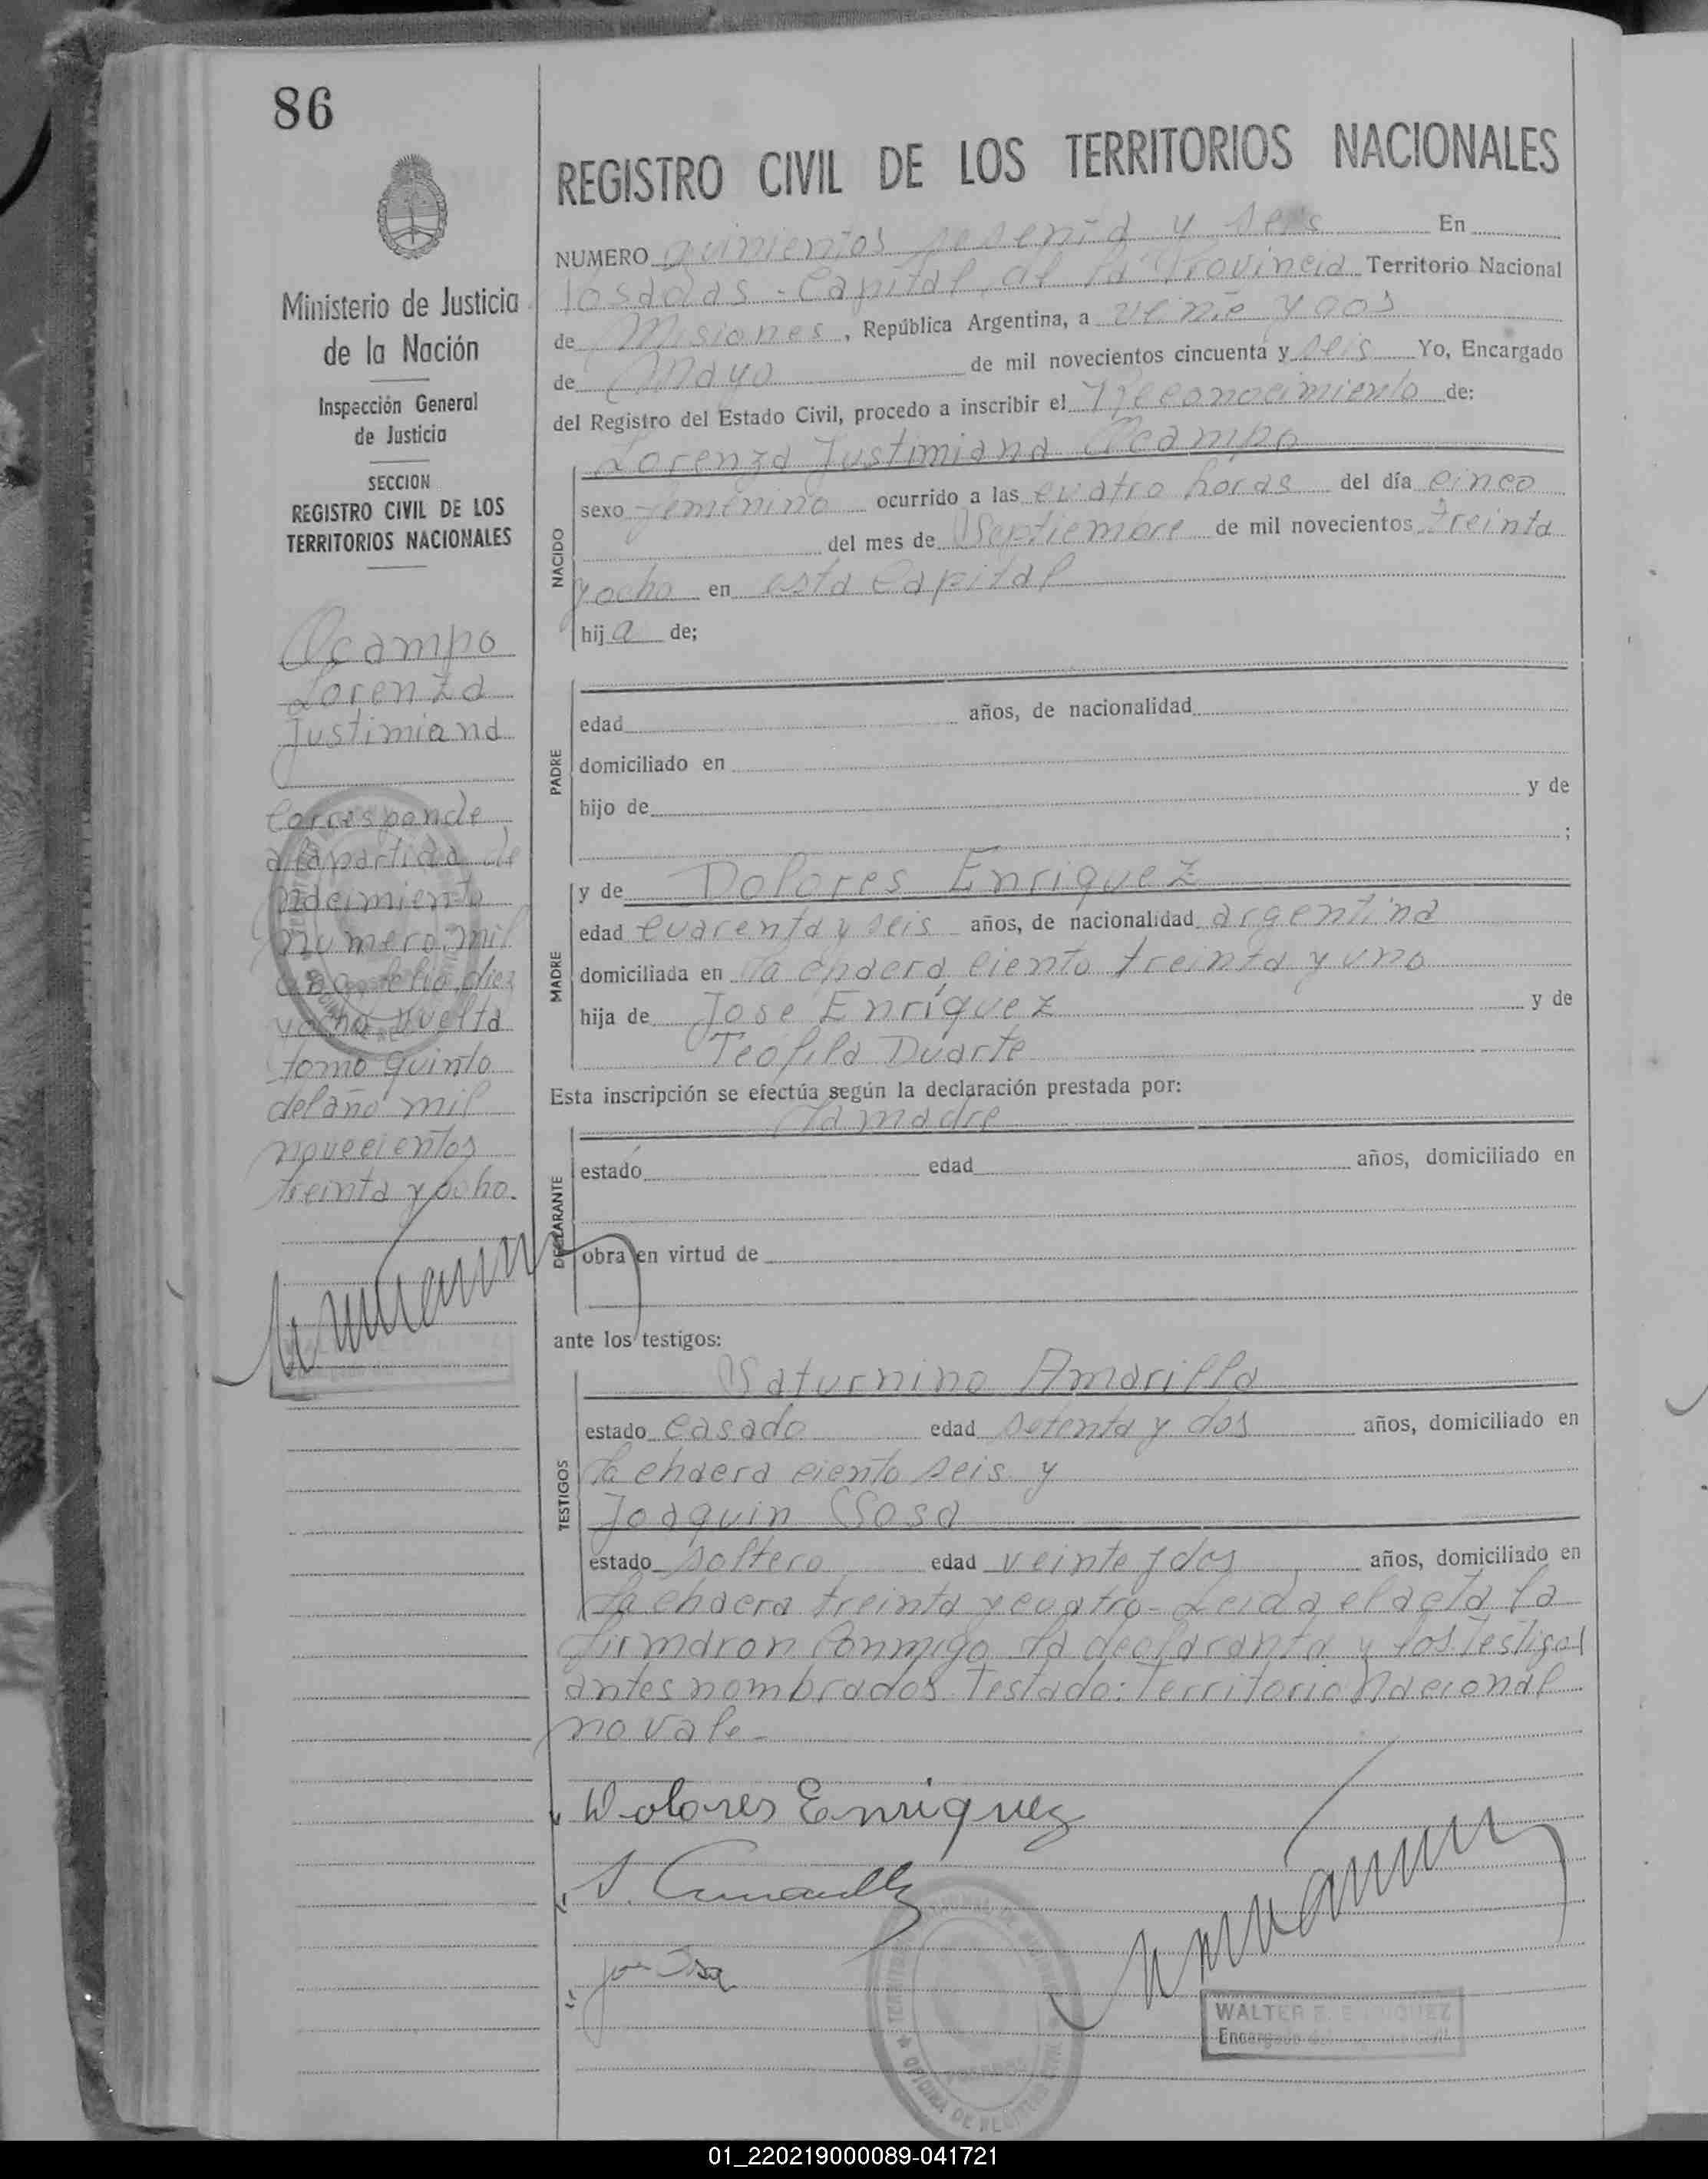 86
Ministerio de Justicia
de la Nación
Inspección General
de Justicia
SECCION
REGISTRO CIVIL DE LOS
TERRITORIOS NACIONALES
Ocampo
Lorenza
Justimiana
Corresponde
a la partida de
nacimiento
numero mil
folio diez
y ocho vuelta
tomo quinto
del año mil
novecientos
treinta y ocho.
REGISTRO CIVIL DE LOS TERRITORIOS NACIONALES
NUMERO quinientos sesenta y seis En
Posadas - Capital de la Provincia Territorio Nacional
de Misiones, República Argentina, a veinte y dos
de Mayo de mil novecientos cincuenta y seis Yo, Encargado
del Registro del Estado Civil, procedo a inscribir el Reconocimiento de:
Lorenza Justimiana Ocampo
NACIDO
sexo femenino ocurrido a las cuatro horas del día cinco
del mes de Septiembre de mil novecientos treinta
y ocho en esta Capital
hija de;
PADRE
edad años, de nacionalidad
domiciliado en
hijo de y de
;
MADRE
y de Dolores Enriquez
edad cuarenta y seis años, de nacionalidad argentina
domiciliada en la chacra ciento treinta y uno
hija de José Enríquez y de
Teofila Duarte
Esta inscripción se efectúa según la declaración prestada por:
la madre
DECLARANTE
estado edad años, domiciliado en
obra en virtud de
ante los testigos:
TESTIGOS
Saturnino Amarilla
estado casado edad setenta y dos años, domiciliado en
la chacra ciento seis y
Joaquin Sosa
estado soltero edad veinte y dos años, domiciliado en
la chacra treinta y cuatro - Leida el acta la
firmaron conmigo la declaranta y los testigos
antes nombrados. Testado: Territorio Nacional
no vale -
Dolores Enriquez
WALTER
01_220219000089-041721